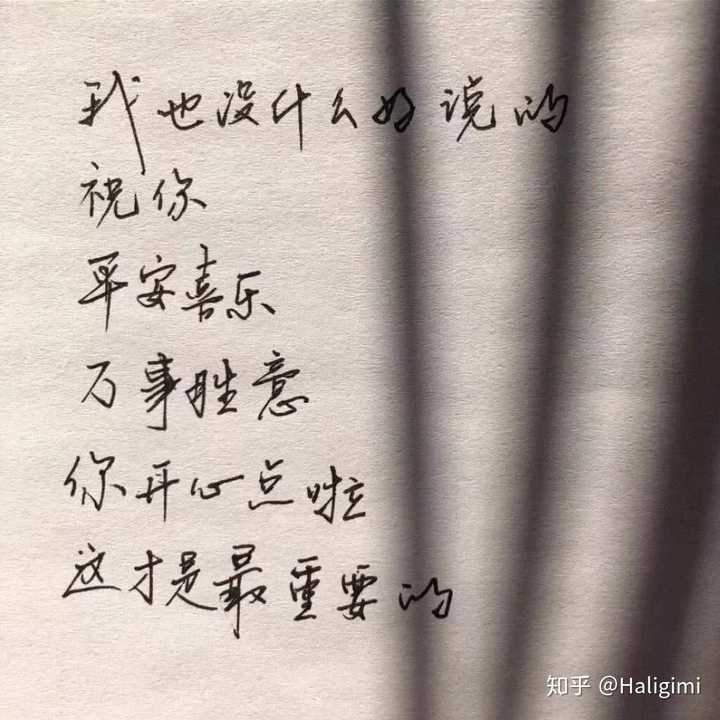 我也没什么好说的
祝你
平安喜乐
万事胜意
你开心点啦
这才是最重要的
知乎 @Haligimi